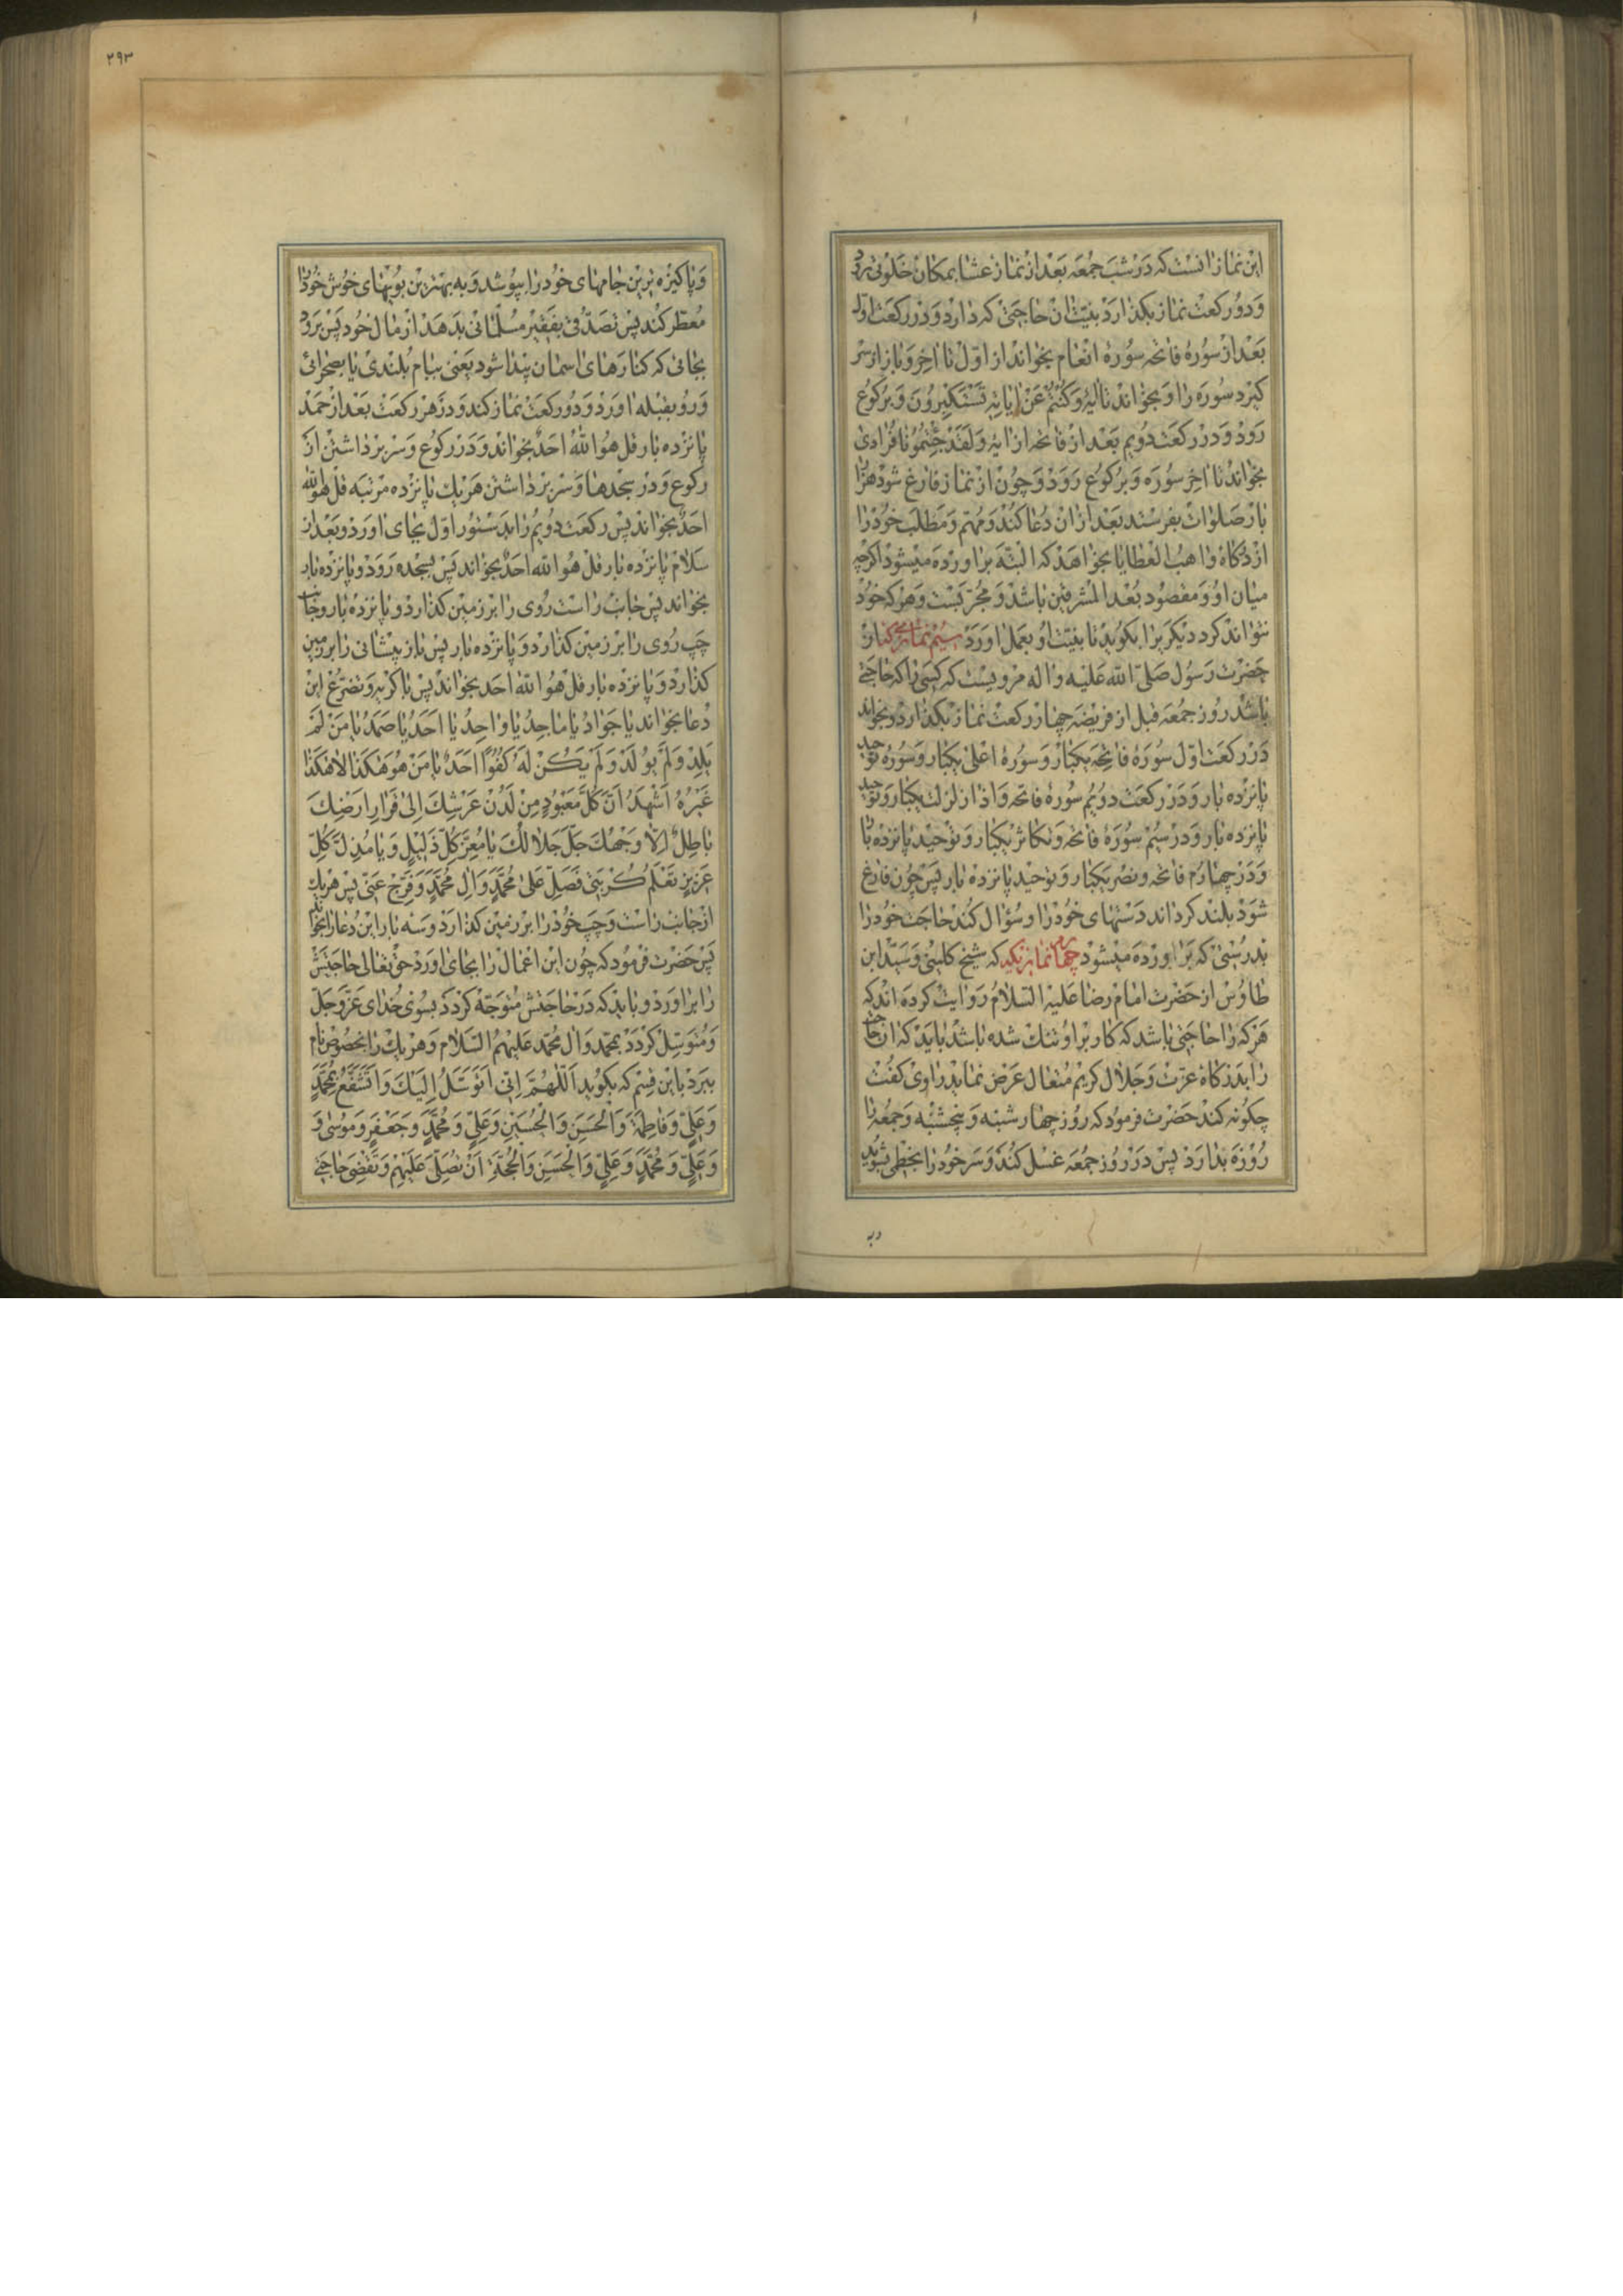 این نماز انست که در شب جمعه بعد از نماز عشا بمکان خلوتی رود
و دو رکعت نماز بکذارد بنیت ان حاجتی که دارد و در رکعت اول
بعد از سوره فاتحه سوره انعام بخواند از اول تا اخر و باز از سر
کیرد سوره را و بخواند تا ایه وکنتم عن ایاته تستکبرون و برکوع
رود و در رکعت دویم بعد از فاتحه از ایه ولقد جئتمونا فرادی
بخواند تا اخر سوره و برکوع رود و چون از نماز فارغ شود هزار
بار صلوات بفرستد بعد از ان دعا کند و مهم و مطلب خود را
از درکاه واهب العطایا بخواهد که البته براورده میشود اکرچه
میان او و مقصود بعد المشرقین باشد و مجربست و هر که خود
نتواند کرد دیکریرا بکوید تا بنیت او بعمل اورد سیم نماز دیکر از
حضرت رسول صلی الله علیه واله مرویست که کسی را که حاجتی
باشد روز جمعه قبل از فریضه چهار رکعت نماز بکذارد و بخواند
در رکعت اول سوره فاتحه یکبار و سوره اعلی یکبار و سوره توحید
پانزده بار و در رکعت دویم سوره فاتحه و اذا زلزلت یکبار و توحید
پانزده بار و در سیم سوره فاتحه و تکاثر یکبار و توحید پانزده بار
و در چهارم فاتحه و نصر یکبار و توحید پانزده بار پس چون فارغ
شود بلند کرداند دستهای خود را و سؤال کند حاجت خود را
بدرستی که براورده میشود چهارم نماز دیکر که شیخ کلینی و سید ابن
طاوس از حضرت امام رضا علیه السلام روایت کرده اند که
هر که را حاجتی باشد که کار بر او تنک شده باشد باید که ان حاجت
را بدرکاه عزت و جلال کریم متعال عرض نماید راوی کفت
چکونه کند حضرت فرمود که روز چهارشنبه و پنجشنبه و جمعه را
روزه بدارد پس در روز جمعه غسل کند و سر خود را بخطمی بشوید
وبه
۲۹۳
و پاکیزه ترین جامهای خود را بپوشد و به بهترین بویهای خوش خود را
معطر کند پس تصدقی بفقیر مسلمانی بدهد از مال خود پس برود
بجائی که کنارهای اسمان پیدا شود یعنی ببام بلندی یا بصحرائی
و رو بقبله اورد و دو رکعت نماز کند و در هر رکعت بعد از حمد
پانزده بار قل هو الله احد بخواند و در رکوع و سر برداشتن از
رکوع و در سجدها و سر برداشتن هر یک پانزده مرتبه قل هو الله
احد بخواند پس رکعت دویم را بدستور اول بجای اورد و بعد از
سلام پانزده بار قل هو الله احد بخواند پس بسجده رود و پانزده بار
بخواند پس جانب راست روی را بر زمین کذارد و پانزده بار و جانب
چپ روی را بر زمین کذارد و پانزده بار پس باز پیشانی را بر زمین
کذارد و پانزده بار قل هو الله احد بخواند پس با کریه و تضرع این
دعا بخواند یا جواد یا ماجد یا واحد یا احد یا صمد یا من لم
یلد ولم یولد ولم یکن له کفوا احد یا من هو هکذا لا هکذا
غیره اشهد ان کل معبود من لدن عرشک الی قرار ارضک
باطل الا وجهک جل جلالک یا معز کل ذلیل ویا مذل کل
عزیز تعلم کربتی فصل علی محمد وال محمد وفرج عنی پس هر یک
از جانب راست و چپ خود را بر زمین کذارد و سه بار این دعا را بخواند
پس حضرت فرمود که چون این اعمال را بجای اورد حق تعالی حاجتش
را براورد و باید که در حاجتش متوجه کردد بسوی خدای عز و جل
و متوسل کردد بمحمد وال محمد علیهم السلام و هر یک را بخصوص نام
ببرد باین قسم که بکوید اللهم انی اتوسل الیک واتشفع بمحمد
وعلی وفاطمة والحسن والحسین وعلی ومحمد وجعفر وموسی و
وعلی ومحمد وعلی والحسن والحجة ان تصلی علیهم وتقضی حاجتی